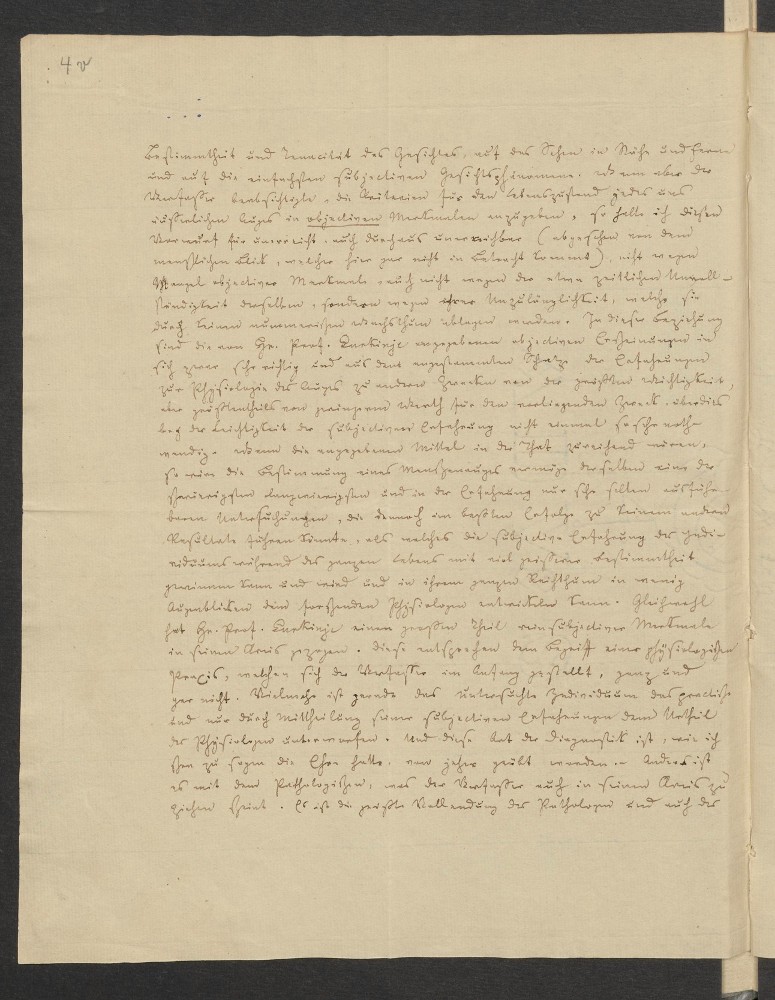 4v
Bestimmtheit und Tenacität des Gesichtes, auf das Sehen in Nähe und Ferne
und auf die einfachsten subjectiven Gesichtsphänomene. Wenn aber der
Verfasser beabsichtigte, die Kriterien für den Lebenszustand jedes uns
äusserlichen Auges in objectiven Merkmalen anzugeben, so halte ich diesen
Vorwurf für unerreicht, auch durchaus unerreichbar (abgesehen von dem
menschlichen Blik, welcher hier gar nicht in Betracht kommt), nicht wegen
Mangel objectiver Merkmale, auch nicht wegen der etwa zeitlichen Unvoll-
ständigkeit derselben, sondern wegen ihrer Unzulänglichkeit, welche sie
durch keinen nummerischen Wachsthum ablegen werden. In dieser Beziehung
sind die von Hr. Prof. Purkinje angegebenen objectiven Erscheinungen in
sich zwar sehr richtig und aus dem angestammten Schatze der Erfahrungen
zur Physiologie des Auges zu andern Zwecken von der größten Wichtigkeit,
aber größtentheils von geringerem Werth für den vorliegenden Zweck, überdies
bey der Leichtigkeit der subjectiven Erfahrung nicht einmal so sehr noth-
wendig. Wenn die angegebenen Mittel in der That zureichend wären,
so wäre die Bestimmung eines Menschenauges vermöge derselben eine der
schwierigsten langwierigsten und in der Erfahrung nur sehr selten ausführ-
baren Untersuchungen, die dennoch im besten Erfolge zu keinem andern
Resultate führen könnte, als welches die subjective Erfahrung des Indi-
viduums während des ganzen Lebens mit viel größerer Bestimmtheit
gewinnen kann und wird und in ihrem ganzen Reichthum in wenig
Augenbliken dem forschenden Physiologen entwickeln kann. Gleichwohl
hat Hr. Prof. Purkinje einen großen Theil rein subjectiver Merkmale
in seinen Kreis gezogen. Diese entsprechen dem Begriff einer physiologischen
Praxis, welchen sich der Verfasser im Anfang gestellt, ganz und
gar nicht. Vielmehr ist gerade das untersuchte Individuum das practische
und nur durch Mittheilung seiner subjectiven Erfahrungen dem Urtheil
des Physiologen unterworfen. Und diese Art der Diagnostik ist, wie ich
schon zu sagen die Ehre hatte, von jeher geübt worden. Anders ist
es mit dem Pathologischen, was der Verfasser auch in seinen Kreis zu
ziehen scheint. Es ist die größte Vollendung des Pathologen und auch des